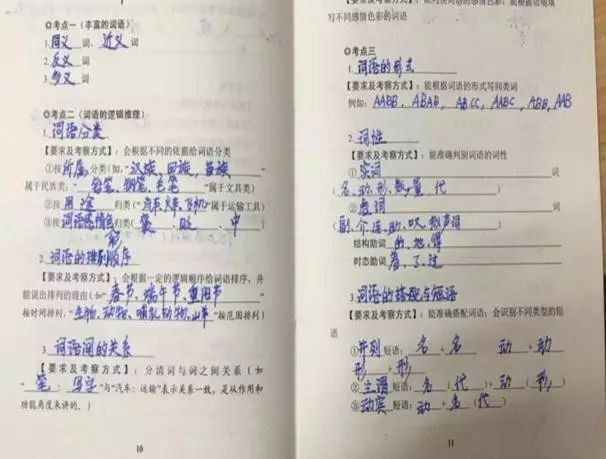 ◎考点一（丰富的词语）
1.同义 词、近义 词
2.反义 词
3.多义 词
◎考点二（词语的逻辑推理）
1.词语分类
【要求及考察方式】：会根据不同的依据给词语分类
①按所属分类（如，“汉族、回族、苗族”
属于民族类；“铅笔、钢笔、毛笔”属于文具类）
②按用途归类（“汽车、火车、飞机”属于运输工具）
③按词语感情色彩归类（褒、贬、中
2.词语的排列顺序
【要求及考察方式】：会根据一定的逻辑顺序给词语排序，并
能说出排列的理由（如“春节、端午节、重阳节”
按时间排列，“生物、动物、哺乳动物、山羊”按范围排列）
3.词语间的关系
【要求及考察方式】：分清词与词之间关系（如
“笔：写字”与“汽车：运输”表示关系一致，是从作用和
功能角度来讲的。）
10
写不同感情色彩的词语
◎考点三
1.词语的形式
【要求及考察方式】：能根据词语的形式写同类词
例如：AABB、ABAB、ABCC、AABC、ABB、AAB
2.词性
【要求及考察方式】：能准确判别词语的词性
①实词 词
（名、动、形、数、量、代）
②虚词 词
（副、介、连、助、叹、拟声词）
结构助词 的、地、得
时态助词 着、了、过
3.词语的搭配与短语
【要求及考察方式】：能准确搭配词语；会识别不同类型的短
语
①并列短语：名+名 动+动
形+形
②主谓短语：名（代）+动（形）
③动宾短语：动+名（代）
11